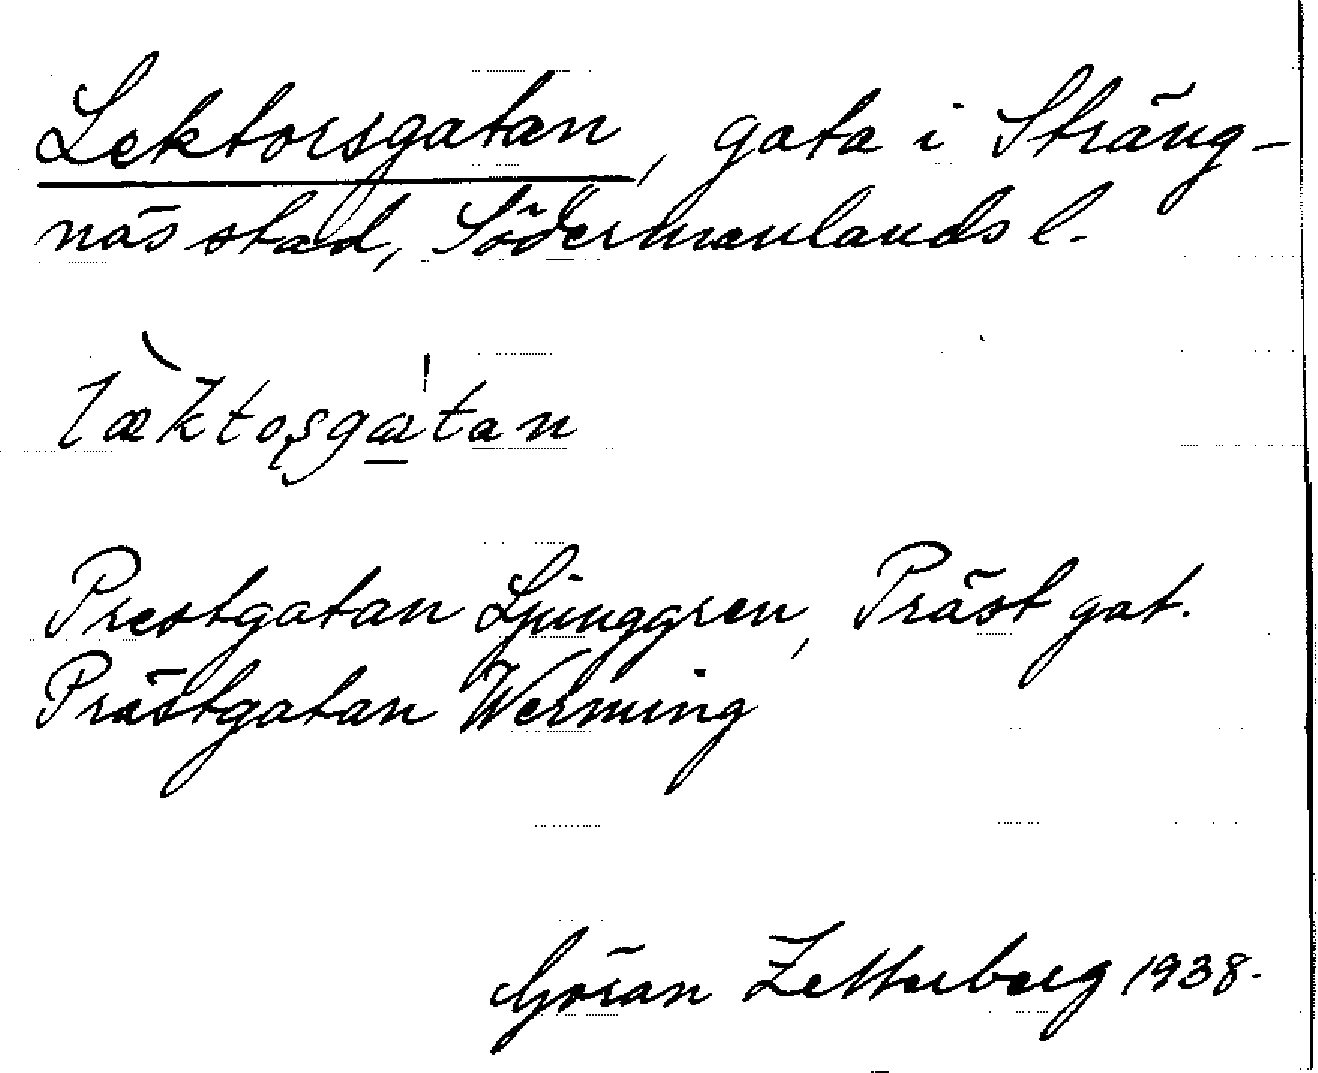 Lektorsgatan, gata i Sträng-
näs stad, Södermanlands l.
læ̀ktoʂga̲ˈtan
Prestgatan Ljunggren, Präst gat.
Prästgatan Werming
Göran Zetterberg 1938.